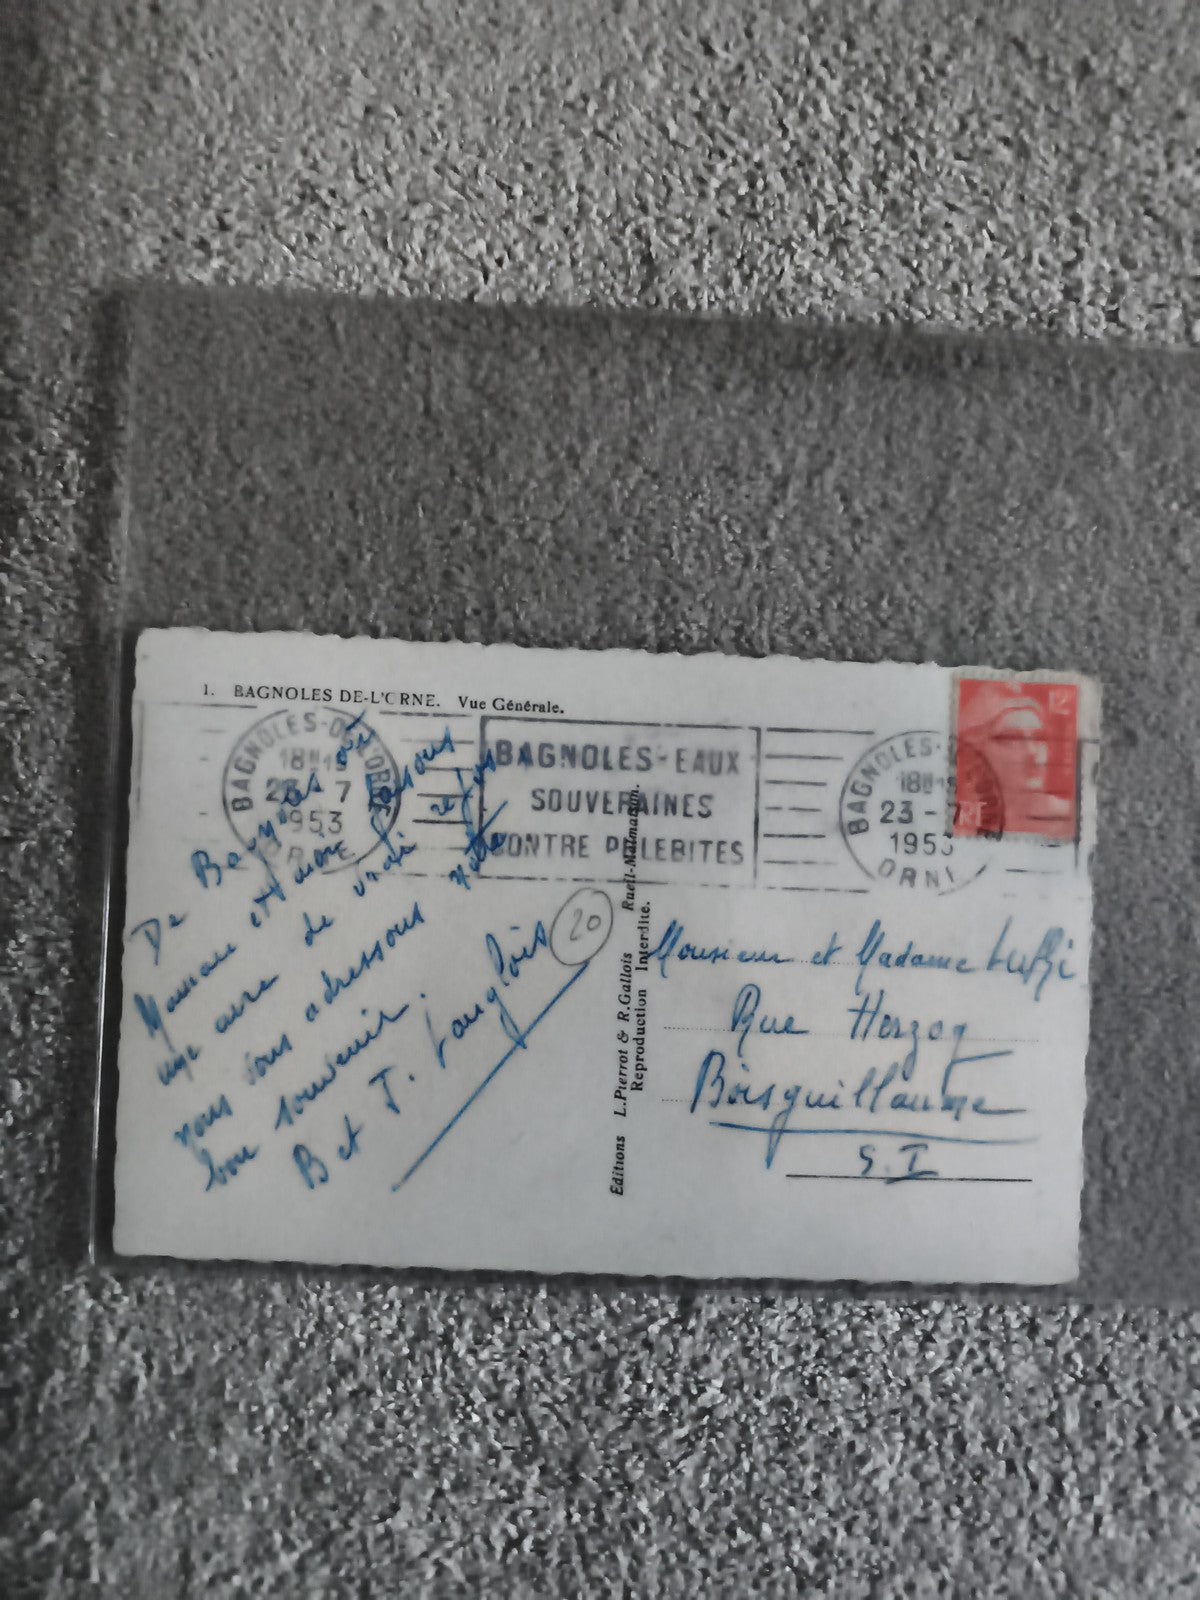 1. BAGNOLES DE-L'ORNE. Vue Générale.
BAGNOLES-DE-L'ORNE
18H15
23-7
1953
ORNE
BAGNOLES-EAUX
SOUVERAINES
CONTRE PHLEBITES
BAGNOLES-DE-L'ORNE
18H15
23-7
1953
ORNE
12F
RF
De Bagnoles où
Maman et moi faisons
une cure de
nous vous adressons notre
bon souvenir.
B et J. Langlois
20
Editions L.Pierrot & R.Gallois Rueil-Malmaison.
Reproduction Interdite.
Monsieur et Madame
Rue Herzog
Boisguillaume
S. I